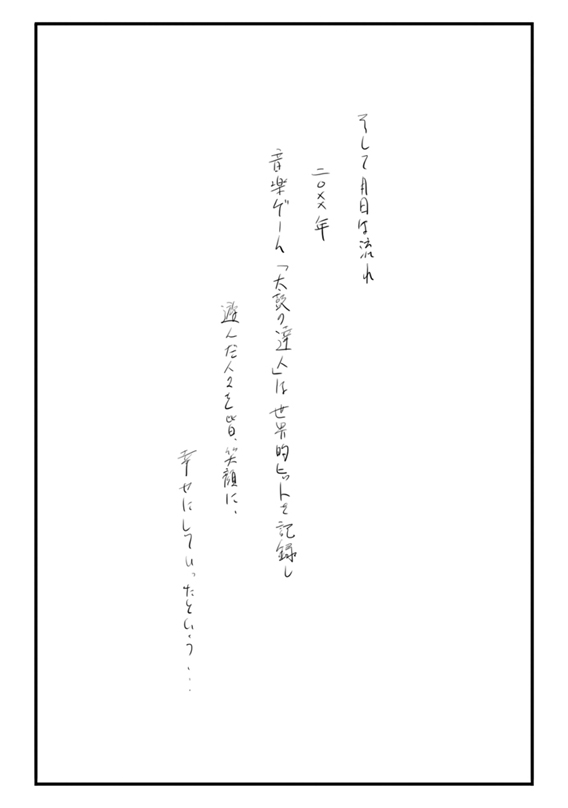 そして月日は流れ
二〇××年
音楽ゲーム「太鼓の達人」は世界的ヒットを記録し
遊んだ人々を皆、笑顔に、
幸せにしていったという...